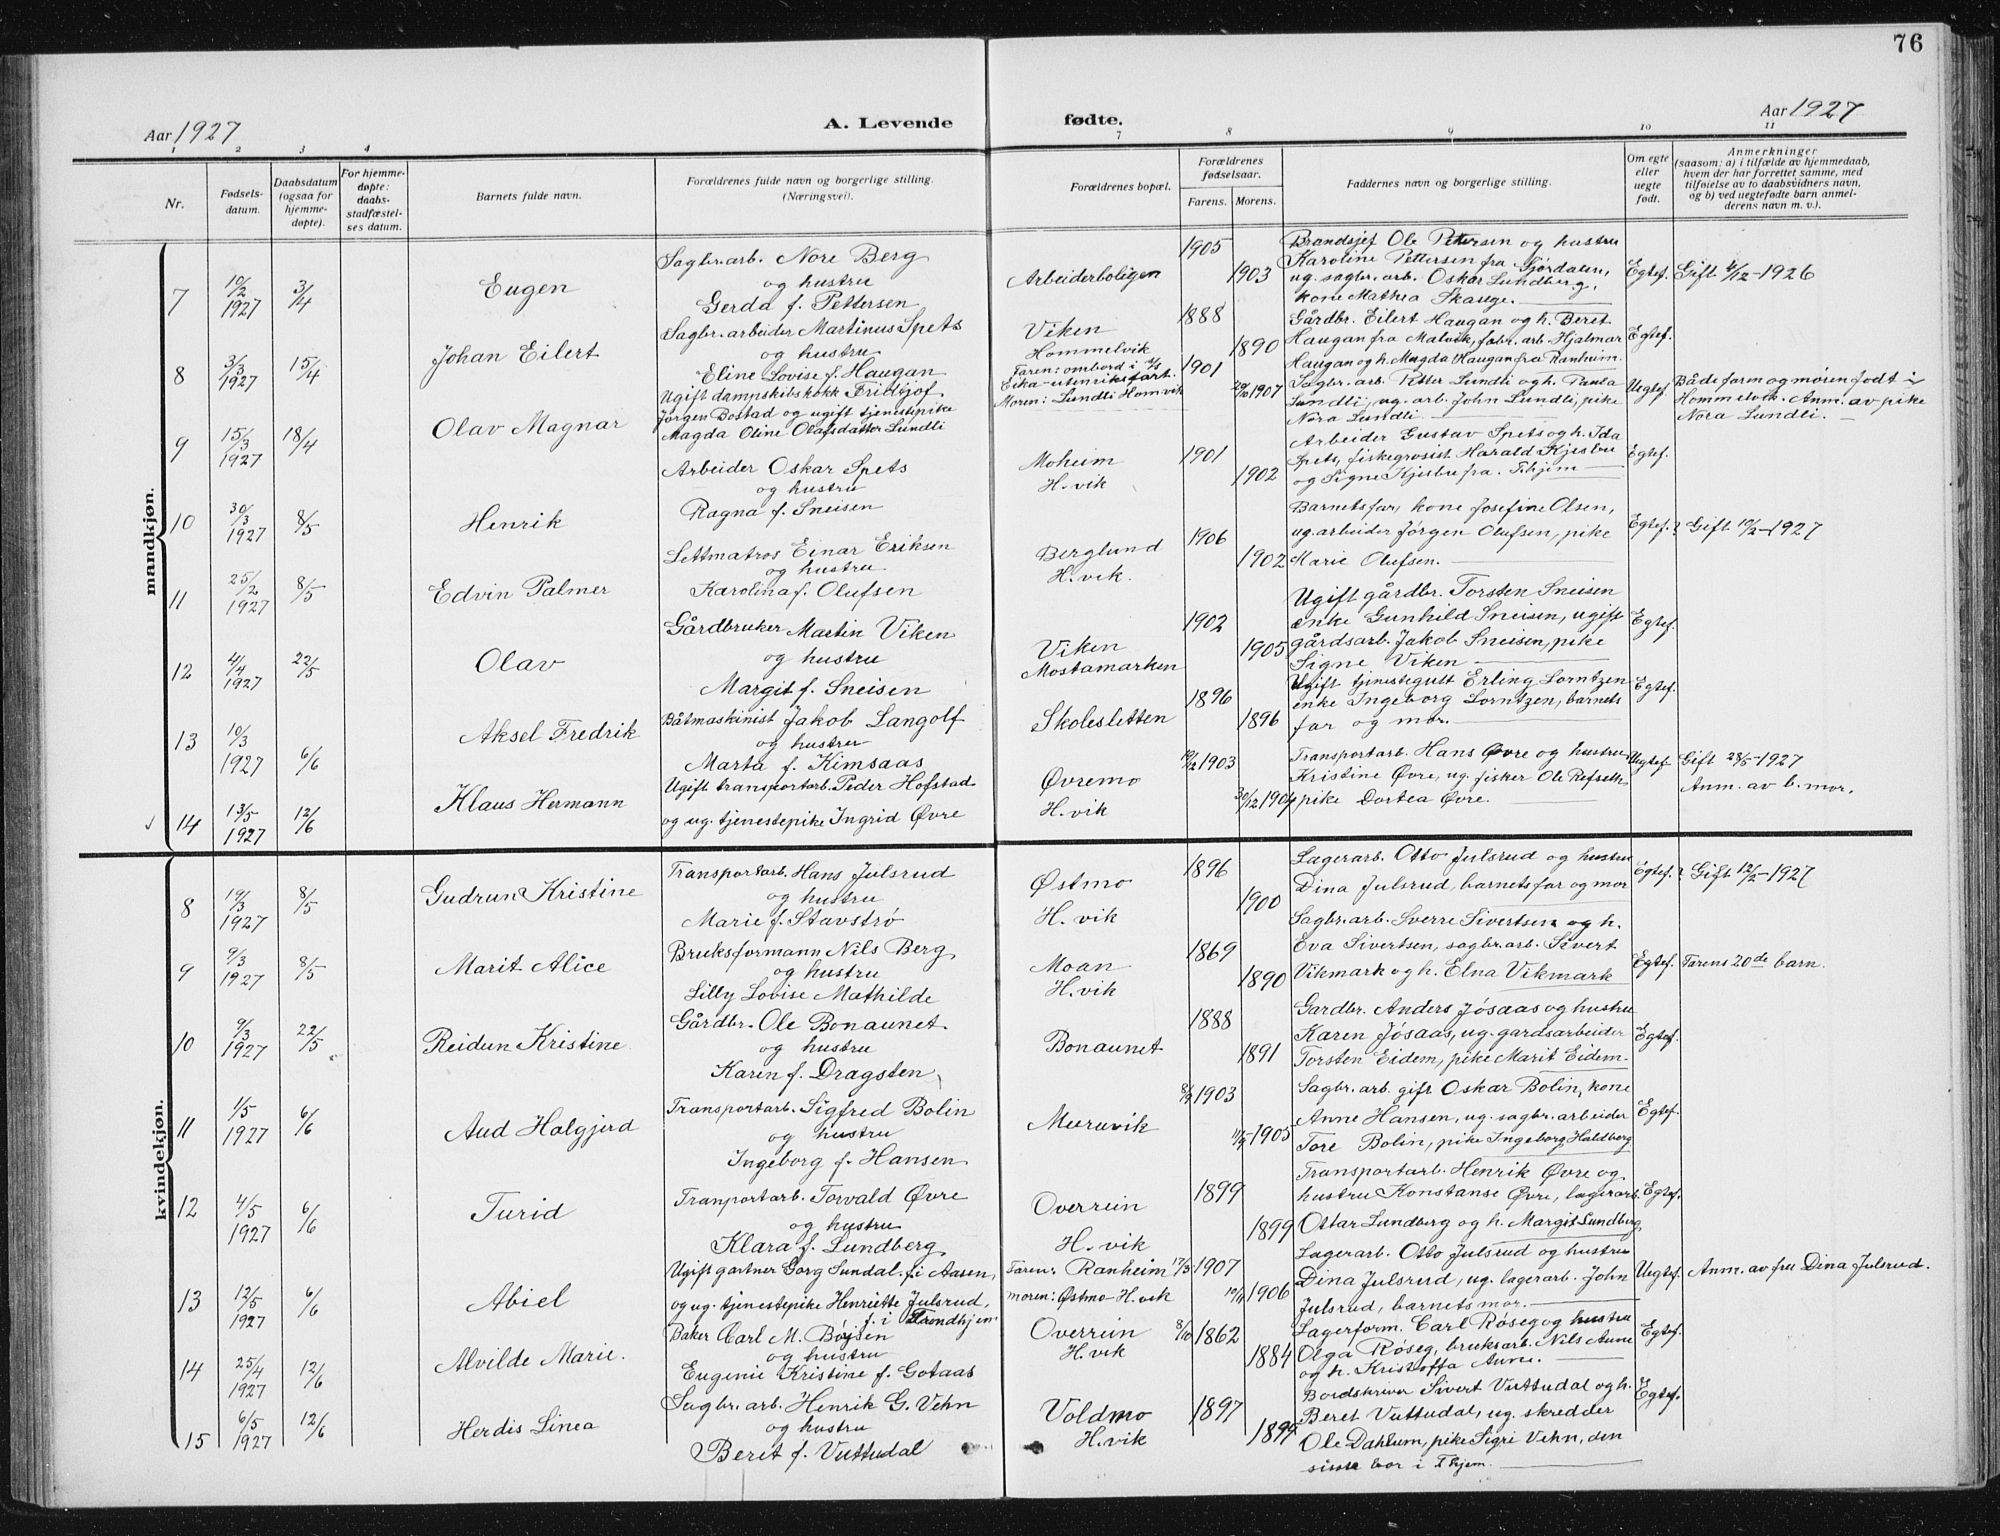 76
Aar 1927
A. Levende fødte.
Aar 1927
1 2 3 4 7 8 9 10 11
Nr.
Fødsels-
datum.
Daabsdatum
(ogsaa for
hjemme-
døpte).
For hjemme-
døpte:
daabs-
stadfæstel-
ses datum.
Barnets fulde navn.
Forældrenes fulde navn og borgerlige stilling.
(Næringsvei).
Forældrenes bopæl.
Forældrenes
fødselsaar.
Farens. Morens.
Faddernes navn og borgerlige stilling.
Om egte
eller
uegte
født.
Anmerkninger
(saasom: a) i tilfælde av hjemmedaab,
hvem der har forrettet samme, med
tilføielse av to daabsvidners navn,
og b) ved uegtefødte barn anmel-
derens navn m. v.).
mandkjøn.
7
10/2 1927
3/4
Eugen
Sagbr.arb. Nore Berg
og hustru
Gerda f. Pettersen
Arbeiderboligen
1905
1903
Brandsjef Ole Pettersen og hustru
Karoline Pettersen fra Fjørdalen,
ug. sagbr. arb. Oskar Lundberg,
kone Mathea Skauge.
Egtef.
Gift 4/12-1926
8
3/3 1927
15/4
Johan Eilert
Sagbr. arbeider Martinus Spets
og hustru
Eline Lovise f. Haugan
Viken
Hommelvik
1888
1890
Gårdbr. Eilert Haugan og h. Beret
Haugan fra Malvik, fabr. arb. Hjalmar
Haugan og h. Magda Haugan fra Ranheim.
Egtef.
9
15/3 1927
18/4
Olav Magnar
Ugift dampskibskokk Fridtjof
Jörgen Bostad og ugift tjenestepike
Magda Oline Olafsdatter Lundli
Faren: ombord i D/S
Eika-utenriksfart.
Moren: Lundli Homvik
1901
29/10 1907
Sagbr. arb. Petter Lundli og h. Paula
Lundli, ug. arb. John Lundli, pike
Nora Lundli
Uegtef.
Både farm og møren født i
Hommelvik. Anm. av pike
Nora Lundli.
10
30/3 1927
8/5
Henrik
Arbeider Oskar Spets
og hustru
Ragna f. Sneisen
Moheim
H. vik
1901
1902
Arbeider Gustav Spets og h. Ida
Spets, fiskegrosist Harald Kjesbu
og Signe Kjesbu fra Thjem
Egtef.
11
25/2 1927
8/5
Edvin Palmer
Lettmatros Einar Eriksen
og hustru
Karolina f. Olufsen
Berglund
H. vik.
1906
1902
Barnets far, kone Josefine Olsen,
ug. arbeider Jørgen Olufsen, pike
Marie Olufsen.
Egtef.
Gift 19/2-1927
12
4/4 1927
22/5
Olav
Gårdbruker Martin Viken
og hustru
Margit f. Sneisen
Viken
Mostamarken
1902
1905
Ugift gårdbr. Torsten Sneisen
enke Gunhild Sneisen, ugift
gårdsarb. Jakob Sneisen, pike
Signe Viken
Egtef.
13
10/3 1927
6/6
Aksel Fredrik
Båtmaskinist Jakob Langolf
og hustru
Marta f. Kimsaas
Skolesletten
1896
1896
Ugift tjenestegutt Erling Lorntzen
enke Ingeborg Lorntzen, barnets
far og mor.
Egtef.
14
13/5 1927
12/6
Klaus Hermann
Ugift transportarb. Peder Hofstad
og ug. tjenestepike Ingrid Øvre
Øvremo
H. vik
19/12 1903
30/12 1904
Transportarb. Hans Øvre og hustru
Kristine Øvre, ug. fisker Ole Refseth
pike Dortea Øvre.
Uegtef.
Gift 28/5-1927
Anm. av b. mor.
kvindekjøn.
8
19/3 1927
8/5
Gudrun Kristine
Transportarb. Hans Julsrud
og hustru
Marie f. Stavstrø
Østmo
H. vik
1896
1900
Lagerarb. Otto Julsrud og hustru
Dina Julsrud, barnets far og mor
Egtef.
Gift 12/2-1927
9
9/3 1927
8/5
Marit Alice
Bruksformann Nils Berg
og hustru
Lilly Lovise Mathilde
Moan
H. vik
1869
1890
Sagbr. arb. Sverre Sivertsen og h.
Eva Sivertsen, sagbr. arb. Sivert
Vikmark og h. Elna Vikmark
Egtef.
Farens 20de barn.
10
9/3 1927
22/5
Reidun Kristine
Gårdbr. Ole Bonaunet
og hustru
Karen f. Dragsten
Bonaunet
1888
1891
Gardbr. Anders Jøsaas og hustru
Karen Jøsaas, ug. gardsarbeider
Torsten Eidem, pike Marit Eidem
Egtef.
11
1/5 1927
6/6
Aud Halgjerd
Transportarb. Sigfred Bolin
og hustru
Ingeborg f. Hansen
Muruvik
8/9 1903
11/9 1905
Sagbr. arb. gift Oskar Bolin, kone
Anne Hansen, ug. sagbr. arbeider
Tore Bolin, pike Ingeborg Haldberg
Egtef.
12
4/5 1927
6/6
Turid
Tranportarb. Torvald Øvre
og hustru
Klara f. Lundberg
Overrein
H. vik
1899
1899
Transportarb. Henrik Øvre og
hustru Konstanse Øvre, lagerarb.
Ottar Lundberg og h. Margit Lundberg
Egtef.
13
12/5 1927
6/6
Abiel
Ugift gartner Gorg Sundal f. i Aasen,
og ug. tjenestepike Henriette Julsrud,
f. i Trondhjem
Faren: Ranheim
moren: Østmo-H. vik
17/3 1907
19/11 1906
Lagerarb. Otto Julsrud og hustru
Dina Julsrud, ug. lagerarb. John
Julsrud, barnets mor.
Uegtef.
Anm. av fru Dina Julsrud.
14
25/4 1927
12/6
Alvilde Marie.
Baker Carl M. Bøjsen
og hustru
Eugenie Kristine f. Gotaas
Overrein
H. vik
8/10 1862
1884
Lagerform. Carl Røseg og hustru
Olga Røseg, bruksarb. Nils Aune
og h. Kristoffa Aune.
Egtef.
15
6/5 1927
12/6
Herdis Linea
Sagbr. arb. Henrik G. Vehn
og hustru
Beret f. Vuttudal
Voldmo
H. vik
1897
1899
Bordskriver Sivert Vuttudal og h.
Beret Vuttudal, ug. skredder
Ole Dahlum, pike Sigri Vehn, den
siste bor i Thjem.
Egtef.